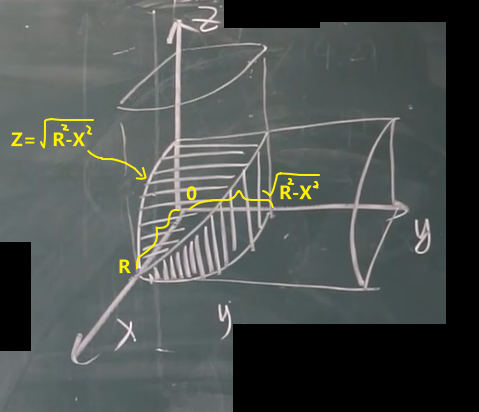 Z
Z=√R²-X²
O
√R²-X²
R
y
x
y